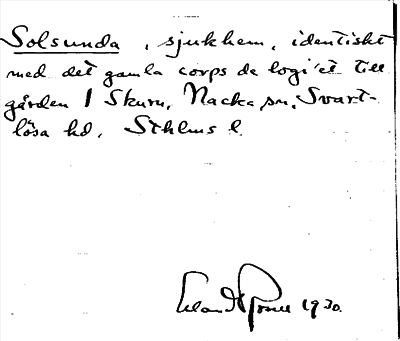 Solsunda, sjukhem, identiskt
med det gamla corps de logi'et till
gården Skuru, Nacka sn, Svart-
lösa hd, Sthlms l.
1930.